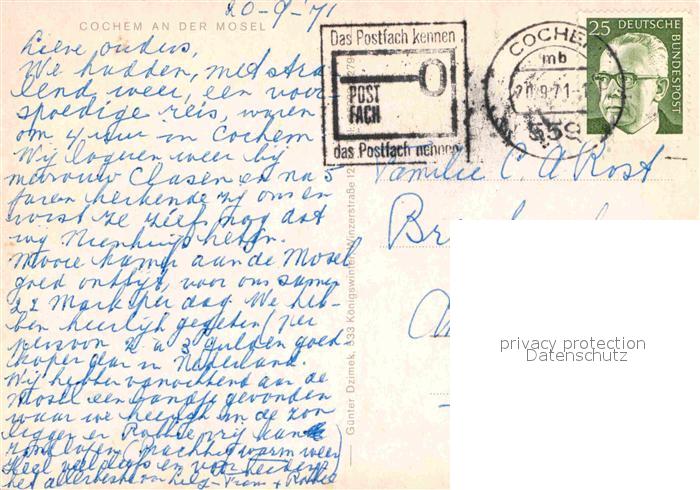 20-9-'71
COCHEM AN DER MOSEL
Lieve ouders,
We hadden, met stra
lend weer, een voor
spoedige reis, waren
om 4 uur in Cochem
Wij logeren weer bij
mevrouw Clasen en na 5
jaren herkende zij ons en
wist ze zelfs nog dat
wij Nienhuis heten.
Mooie kamer aan de Mosel
goed ontbijt, voor ons samen
22 Mark per dag. We heb-
ben heerlijk gegeten (per
persoon 2 a 3 gulden goed
koper dan in Nederland.
Wij hebben vanochtend aan de
Mosel een bandje gevonden
waar we heerlijk in de zon
liggen en vrij kan
rondlopen (prachtig warm weer)
Heel veel liefs en
het allerbeste
Das Postfach kennen
POST
FACH
das Postfach nehmen
COCHEM
mb
20.9.71
559
25 DEUTSCHE BUNDESPOST
Familie C. A. Kost
Günter Dzimek, 533 Königswinter, Winzerstraße 12
privacy protection
Datenschutz